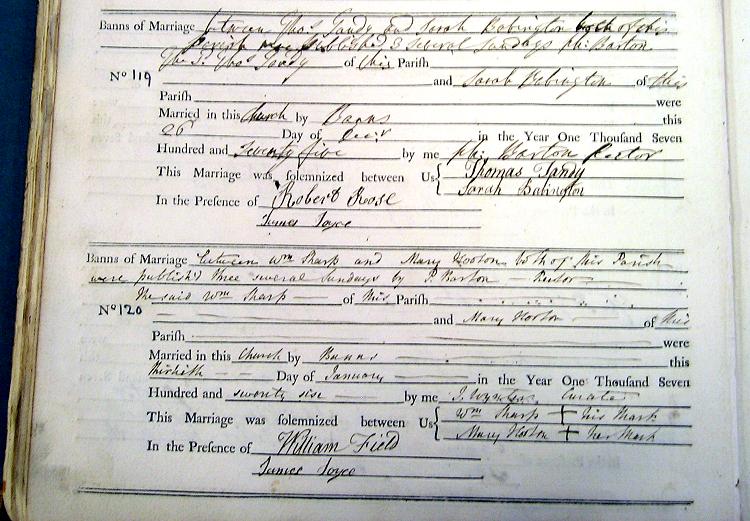 Banns of Marriage between Thos Tandy and Sarah Babington both of this
Parish were published 3 several Sundays Phi: Barton
The Sd. Thos Tandy of this Parish
No 119 and Sarah Babington of this
Parish were
Married in this Church by Banns this
26 Day of Decr in the Year One Thousand Seven
Hundred and Seventy five by me Phi: Barton Rector
This Marriage was solemnized between Us { Thomas Tandy
Sarah Babington
In the Presence of Robert Roose
James Joyce
Banns of Marriage between Wm Sharp and Mary Hooton both of this Parish
were publish'd three several Sundays by P. Barton Rector
The said Wm Sharp of this Parish
No 120 and Mary Hooton of this
Parish were
Married in this Church by Banns this
thirtieth Day of January in the Year One Thousand Seven
Hundred and seventy six by me J. Curate
This Marriage was solemnized between Us { Wm Sharp + his Mark
Mary Hooton + her Mark
In the Presence of William Field
James Joyce